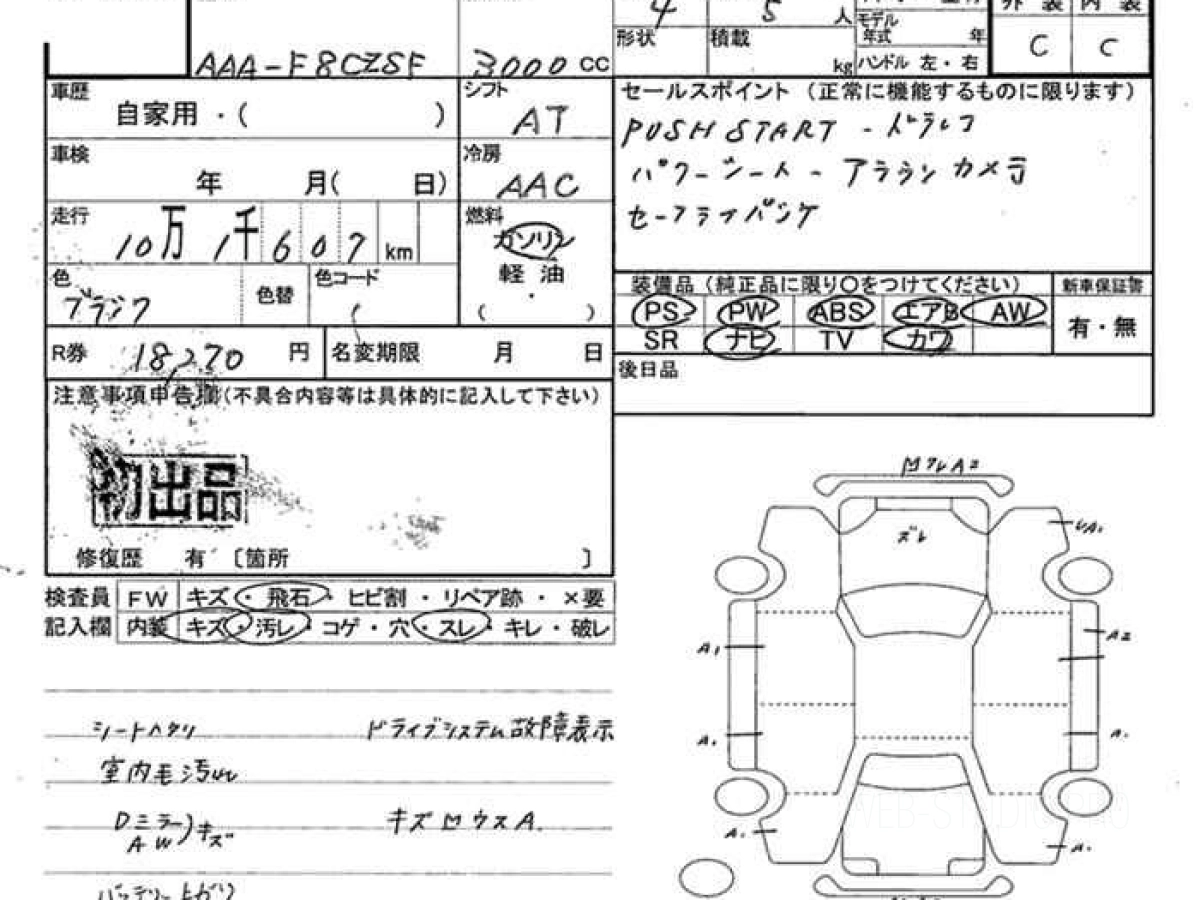 4 5 人
外装 内装
モデル
年式 年
形状 積載 kg
ハンドル 左・右
C C
AAA-F8CZSF 3000 CC
車歴
自家用・( )
シフト
AT
セールスポイント(正常に機能するものに限ります)
PUSH START - ドラレコ
パワーシート - アラウンカメラ
車検
年 月( 日)
冷房
AAC
走行
10万 1千 6 0 7 km
燃料
ガソリン
軽油
・
( )
色
ブラック
色替
色コード
装備品(純正品に限り〇をつけてください)
新車保証書
PS PW ABS エアB AW
有・無
SR ナビ TV カワ
R券 18,270 円
名変期限 月 日
後日品
注意事項申告欄(不具合内容等は具体的に記入して下さい)
初出品
修復歴 有 〔箇所 〕
検査員 FW キズ・飛石・ヒビ割・リペア跡・×要
記入欄 内装 キズ・汚レ・コゲ・穴・スレ・キレ・破レ
シートヘタリ ドライブシステム故障表示
室内毛汚れ
Dミラー
AW )キズ
キズ凹ウスA.
バッテリー上がり
凹ワレA2
ズレ
レA1
A1
A2
A.
A.
A.
A.
WEB-STUDIO PRO